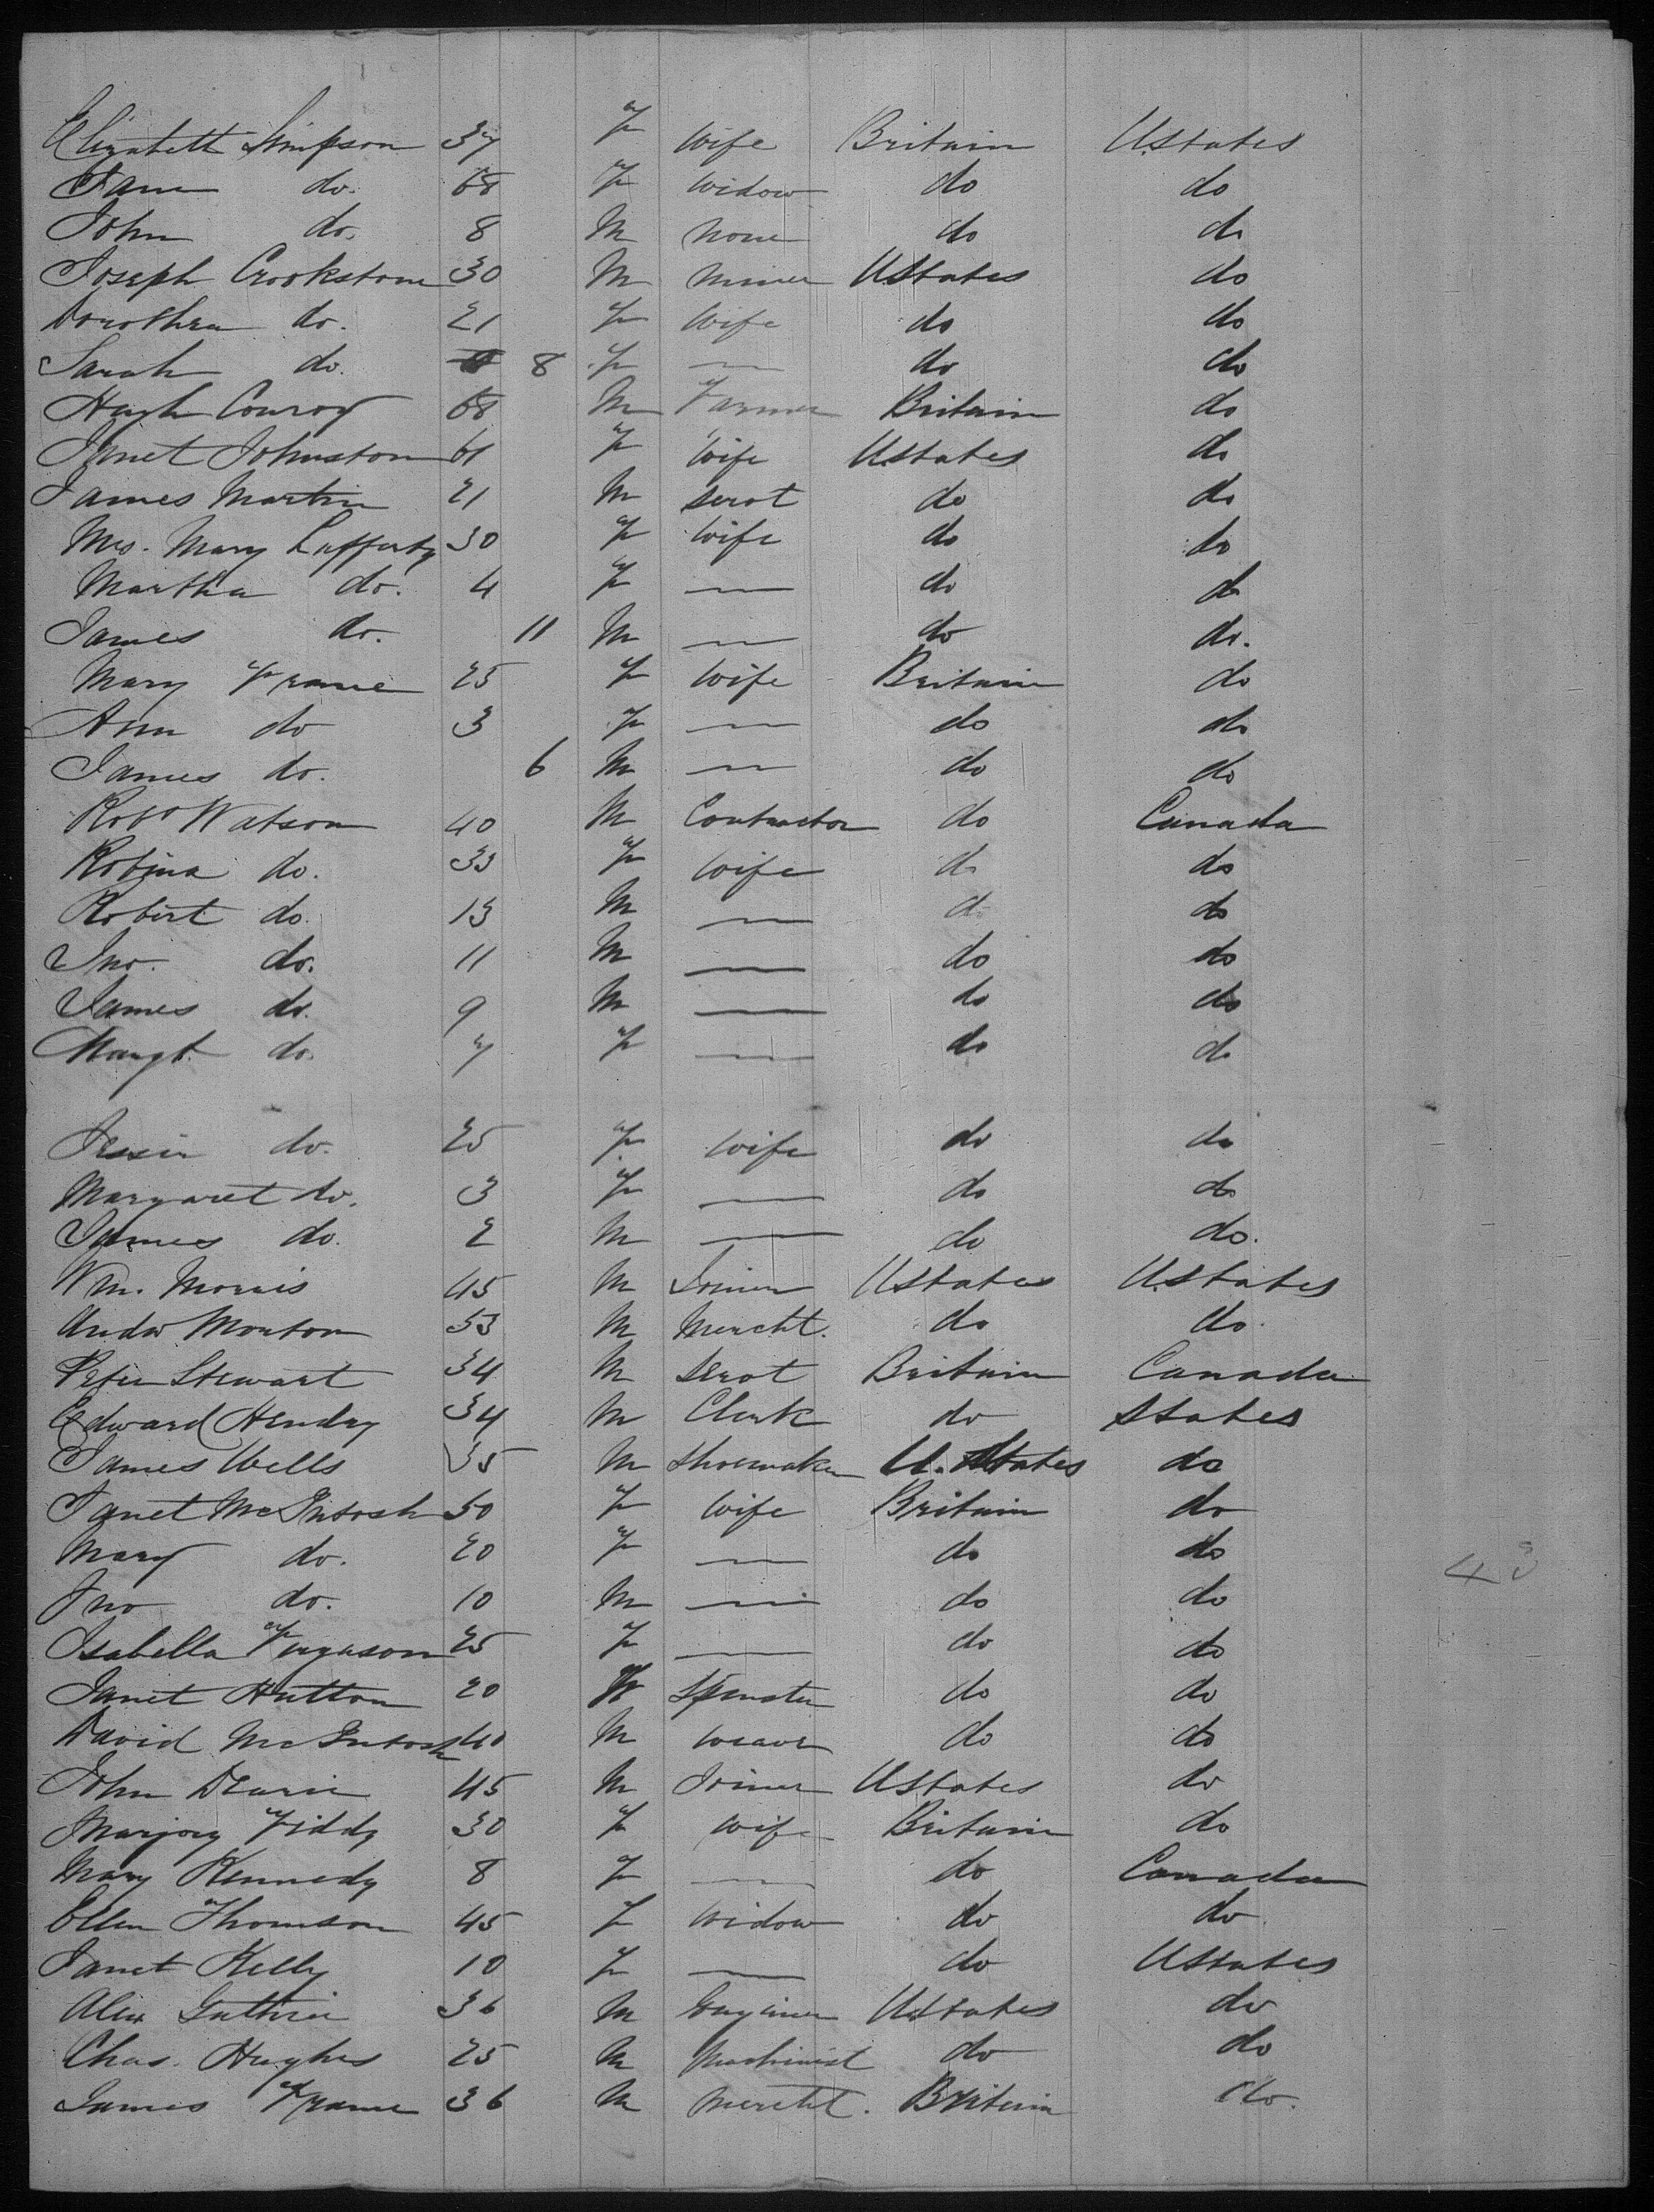 Elizabeth Simpson 37 F Wife Britain UStates
Jane do. 68 F Widow do do
John do. 8 M None do do
Joseph Crookstone 30 M Miner UStates do
Dorothea do. 21 F Wife do do
Sarah do. 8 F — do do
Hugh Conroy 68 M Farmer Britain do
Janet Johnston 61 F Wife UStates do
James Martin 21 M Servt do do
Mrs. Mary Lafferty 30 F Wife do do
Martha do. 4 F — do do
James do. 11 M — do do.
Mary Frame 25 F Wife Britain do
Ann do 3 F — do do
James do. 6 M — do do
Robt Watson 40 M Contractor do Canada
Robina do. 33 F Wife do do
Robert do. 13 M — do do
Jno. do. 11 M — do do
James do. 9 M — do do
Margt. do. 7 F — do do
Jessie do. 25 F Wife do do
Margaret do. 3 F — do do
James do. 2 M — do do.
Wm. Morris 45 M Joiner UStates UStates
Andw Morton 53 M Mercht. do do.
Peter Stewart 34 M Servt Britain Canada
Edward Hendry 34 M Clerk do States
James Wells 35 M Shoemaker U. States do
Janet McIntosh 50 F Wife Britain do
Mary do. 20 F — do do
43
Jno do. 10 M — do do
Isabella Ferguson 25 F — do do
Janet Hutton 20 Spinster do do
David McIntosh 40 M Weaver do do
John Dearie 45 M Joiner UStates do
Marjory Fiddy 30 F Wife Britain do
Mary Kennedy 8 F — do Canada
Ellen Thomson 45 F Widow do do
Janet Kelly 10 F — do UStates
Alex Guthrie 36 M Engineer UStates do
Chas. Hughes 25 M Machinist do do
James Frame 36 M Mercht. Britain do.